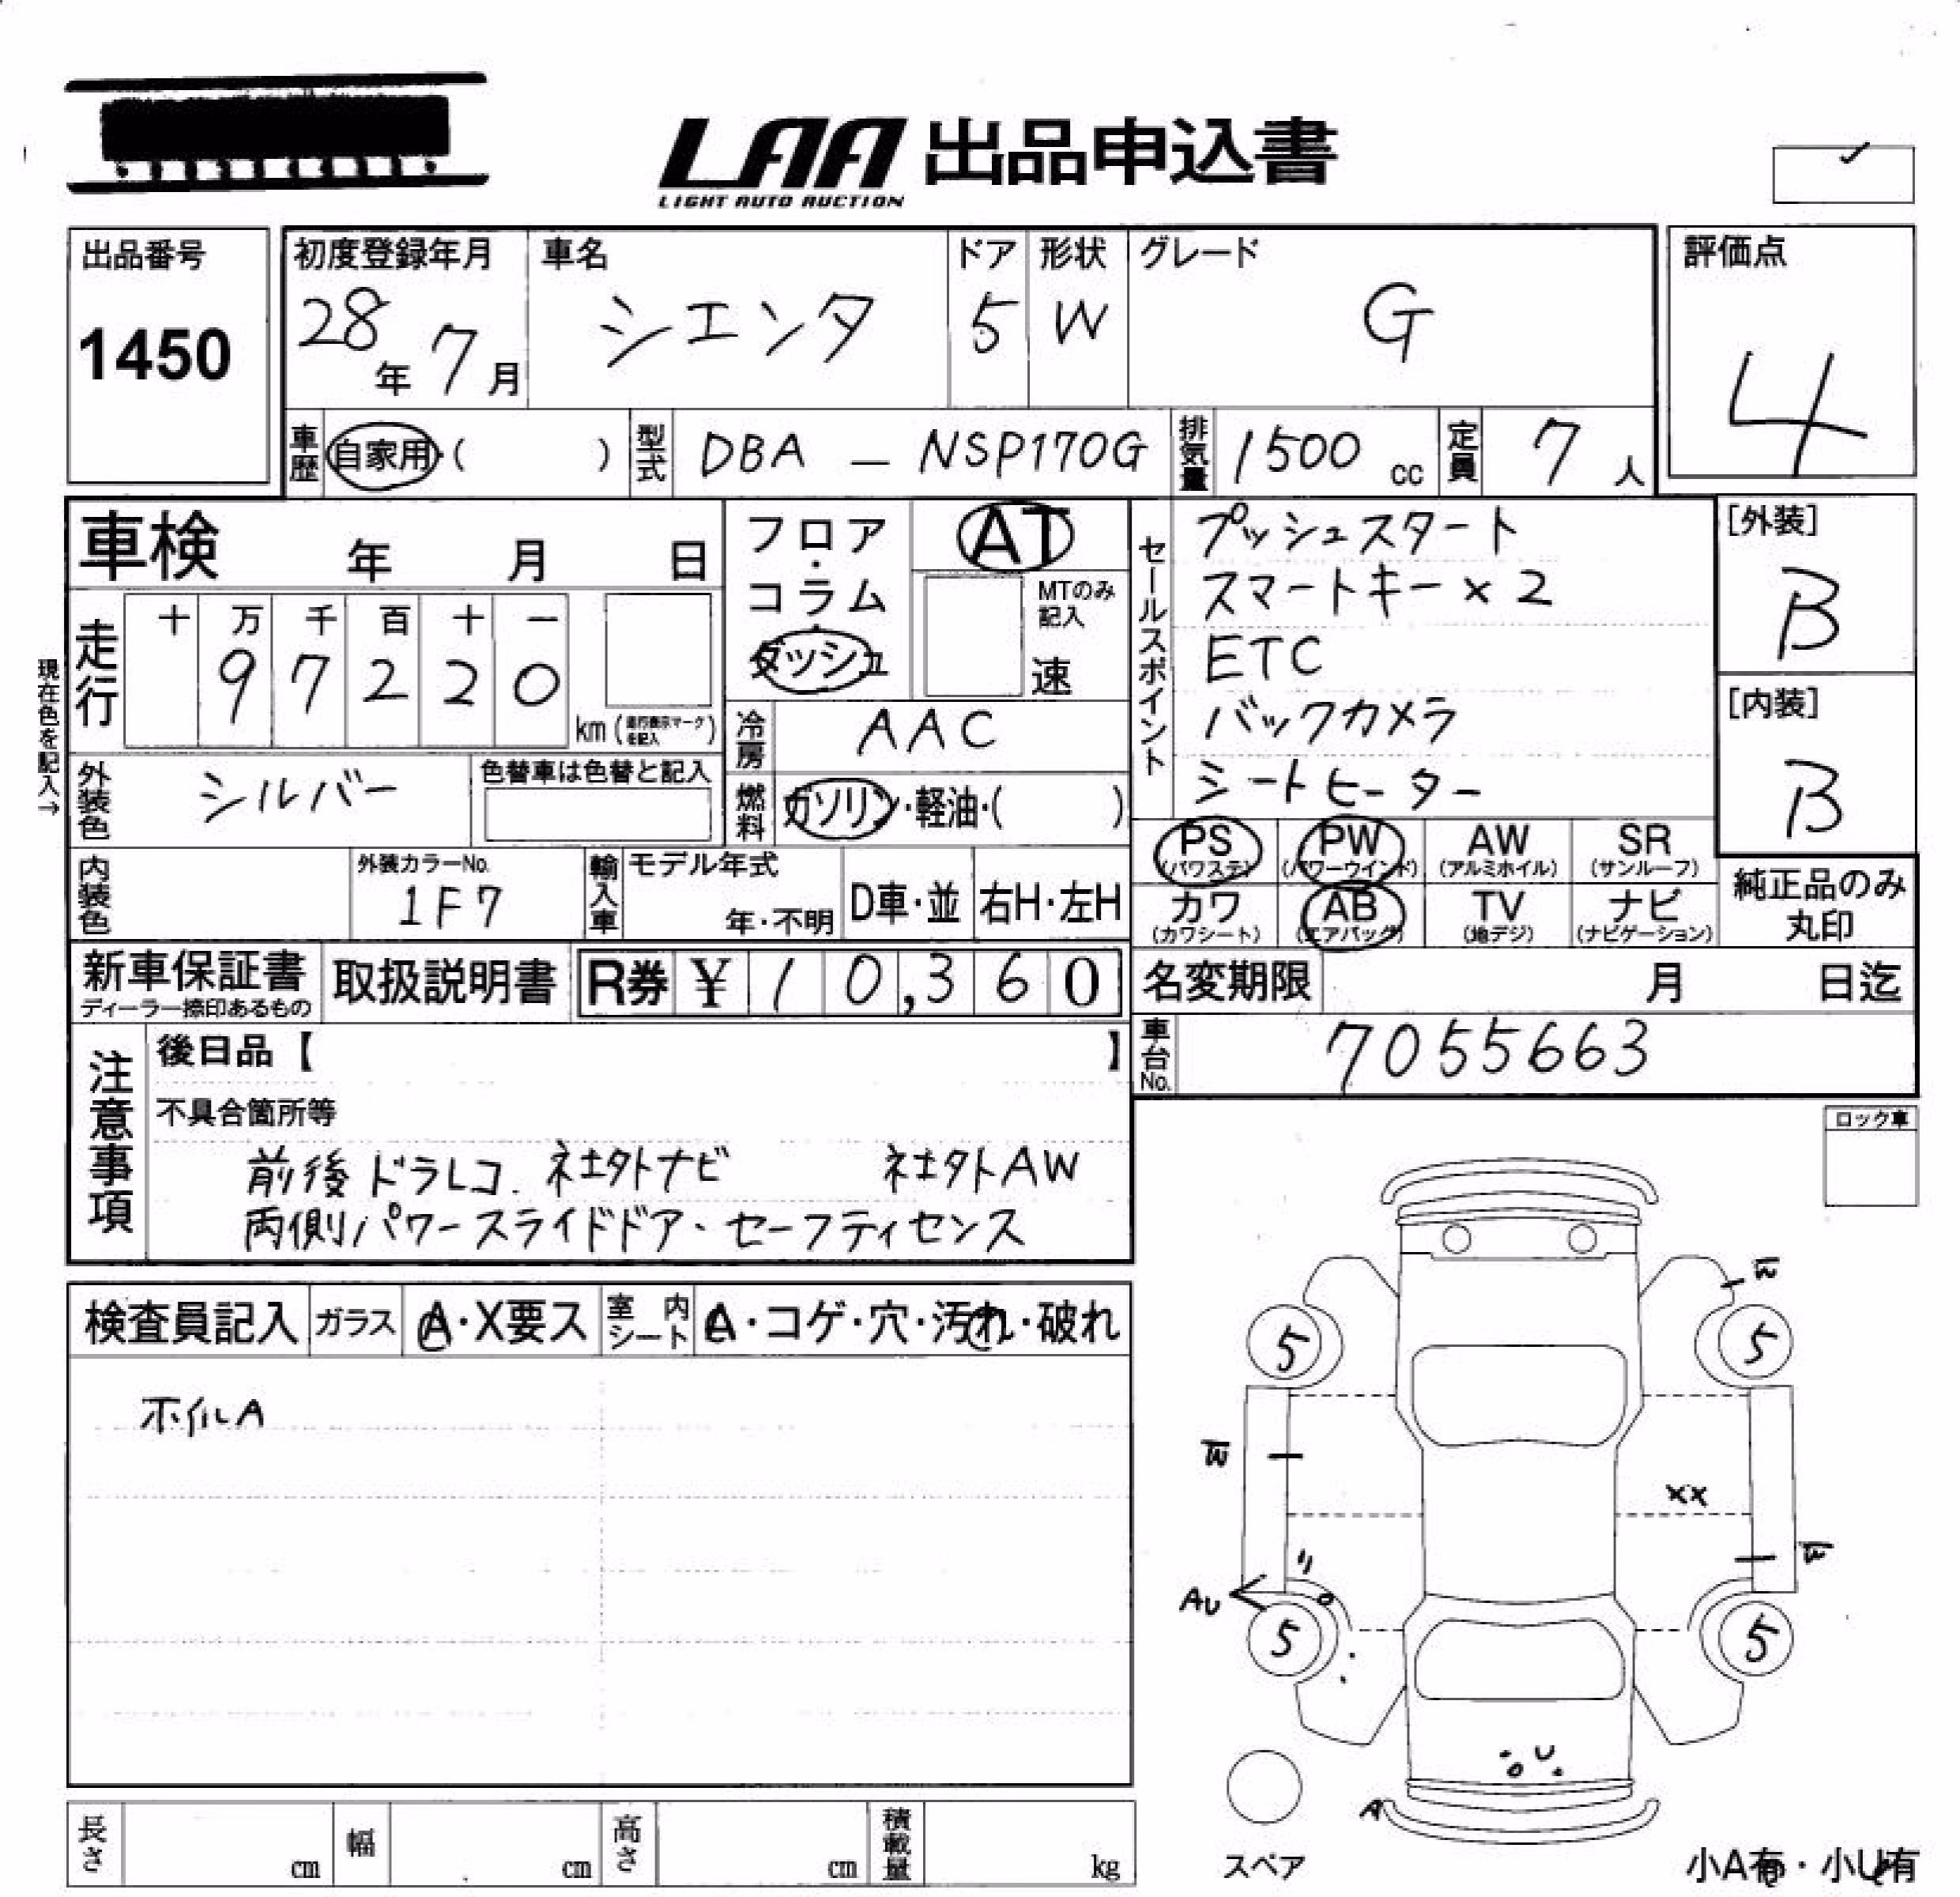 LAA 出品申込書
LIGHT AUTO AUCTION
出品番号
1450
初度登録年月
28年 7月
車名
シエンタ
ドア
5
形状
W
グレード
G
評価点
4
車歴 自家用・( )
型式 DBA — NSP170G
排気量 1500 cc
定員 7 人
車検 年 月 日
フロア・コラム・ダッシュ
AT
MTのみ記入
速
セールスポイント
プッシュスタート
スマートキー×2
ETC
バックカメラ
シートヒーター
[外装]
B
[内装]
B
現在色を記入→
走行
十 万 千 百 十 一
9 7 2 2 0
km (走行表示マークを記入)
冷房 AAC
外装色 シルバー
色替車は色替と記入
燃料 ガソリン・軽油・( )
PS (パワステ)
PW (パワーウインド)
AW (アルミホイル)
SR (サンルーフ)
カワ (カワシート)
AB (エアバッグ)
TV (地デジ)
ナビ (ナビゲーション)
純正品のみ丸印
内装色
外装カラーNo.
1F7
輸入車
モデル年式
年・不明
D車・並
右H・左H
新車保証書
ディーラー捺印あるもの
取扱説明書
R券 ¥ 10,360
名変期限 月 日迄
車台No. 7055663
注意事項
後日品【 】
不具合箇所等
前後ドラレコ. 社外ナビ 社外AW
両側パワースライドドア・セーフティセンス
ロック車
検査員記入
ガラス A・X要ス
室内シート A・コゲ・穴・汚れ・破れ
ホイルA
W
5
5
W
XX
W
AU
5
5
U
A
スペア
小A有・小U有
長さ cm
幅 cm
高さ cm
積載量 kg